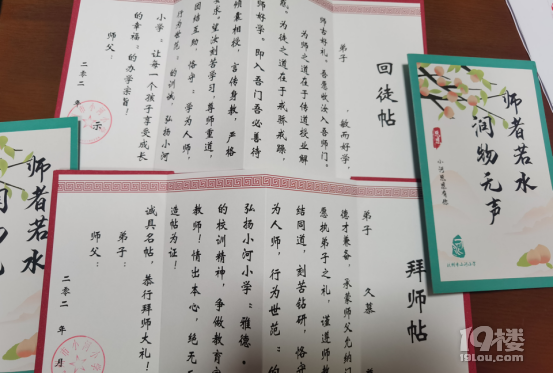 回徒帖
弟子 ，敏而好学，
师古好礼。吾愿收汝入吾师门。
为师之道在于传道授业解
惑。为徒之道在于戒骄戒躁、
师好学。即入吾门吾必善待
倾囊相授，言传身教，严格
求。望汝刻苦学习，尊师重道，
团结互助，恪守：学为人师，
行为世范：的训诫，弘扬小河
小学：让每一个孩子享受成长
的幸福：的办学宗旨！
师父：
示
二零二 年
师者若水
润物无声
师者若水
拜师帖
弟子 久慕
德才兼备，承蒙师父允纳门
愿执弟子之礼，谨遵师教
结同道，刻苦钻研，恪守
为人师，行为世范：的
弘扬小河小学：雅德
的校训精神，争做教育
教师！情出本心，绝无
造帖为证！
诚具名帖，恭行拜师大礼！
弟子：
师父：
二零二 年 月
19楼
19lou.com